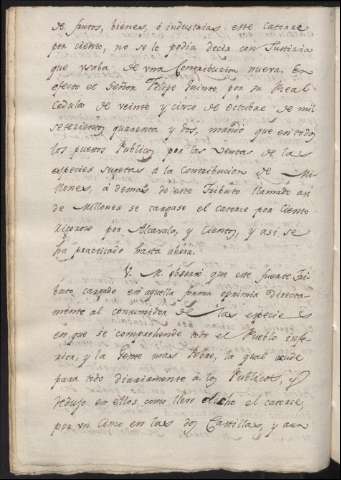 de frutos, bienes, ó industrias este catorce
por ciento, no se le podia decir con Justicia
que usaba de una Contribucion nueva. En
efecto el Señor Felipe Quinto por su Real
Cedula de veinte y cinco de Octubre de mil
setecientos quarenta y dos, mandó que en todos
los puestos Publicos por las Ventas de las
especies sugetas á la Contribucion de Mi-
llones, á demas de este Tributo llamado asi
de Millones se cargase el catorce por Ciento
por Alcavala, y Cientos, y asi se
ha practicado hasta ahora.
V. M. observó que este fuerte Tri-
buto, cargado en aquella forma oprimia directa-
mente al consumidor de las especies
en que se comprehende todo el Pueblo infe-
rior, y la Gente mas Pobre, la qual acude
para todo diariamente á los Publicos, y
redujo en ellos como llevo dicho el catorce
por un Cinco en las dos Castillas, y aun